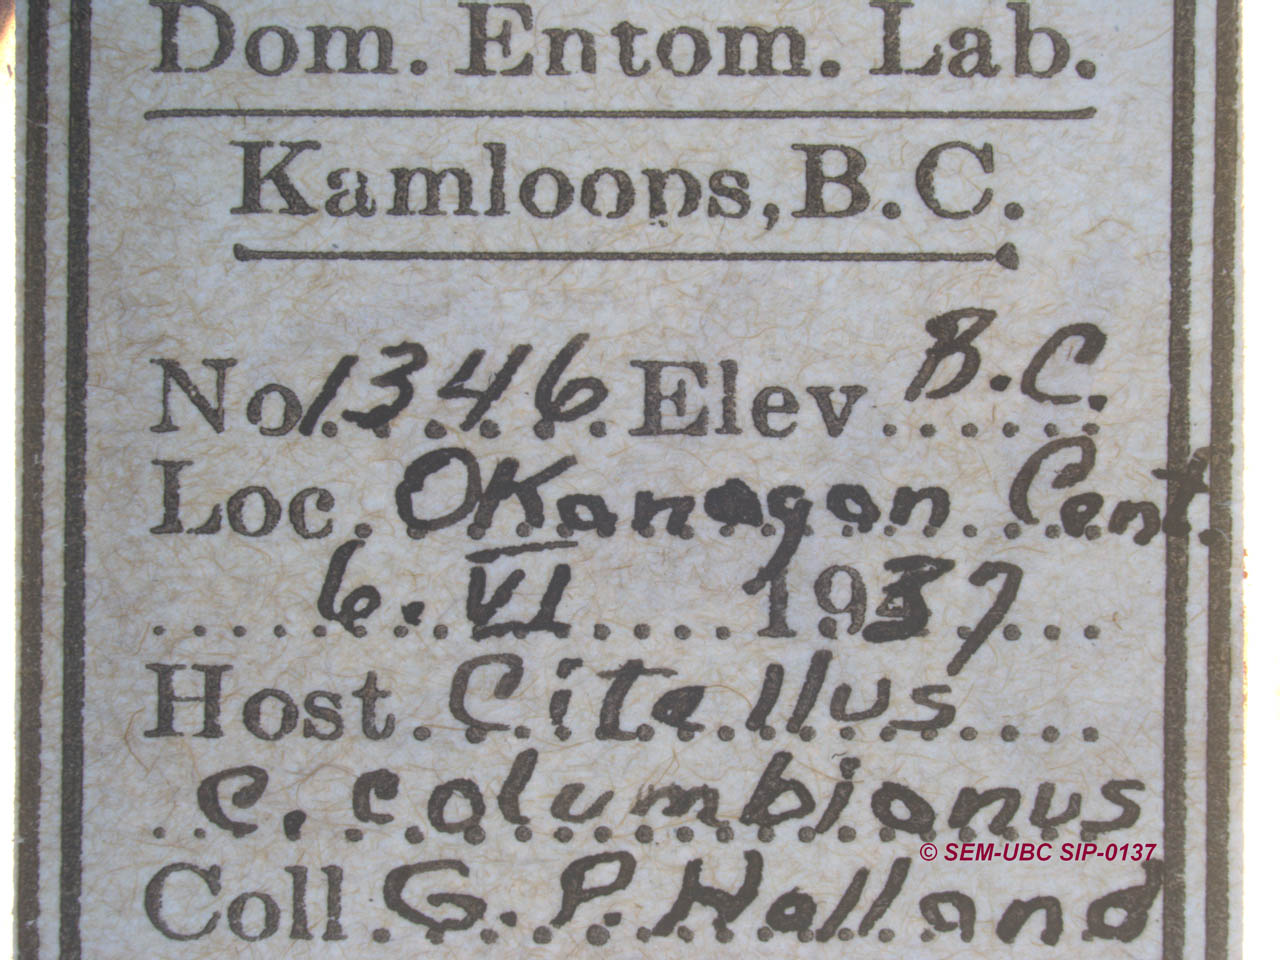 Dom. Entom. Lab.
Kamloops, B.C.
No. 1346. Elev. B.C.
Loc. Okanagan Cent.
6. VI 1937
Host. Citellus
c. columbianus
© SEM-UBC SIP-0137
Coll. G. P. Holland